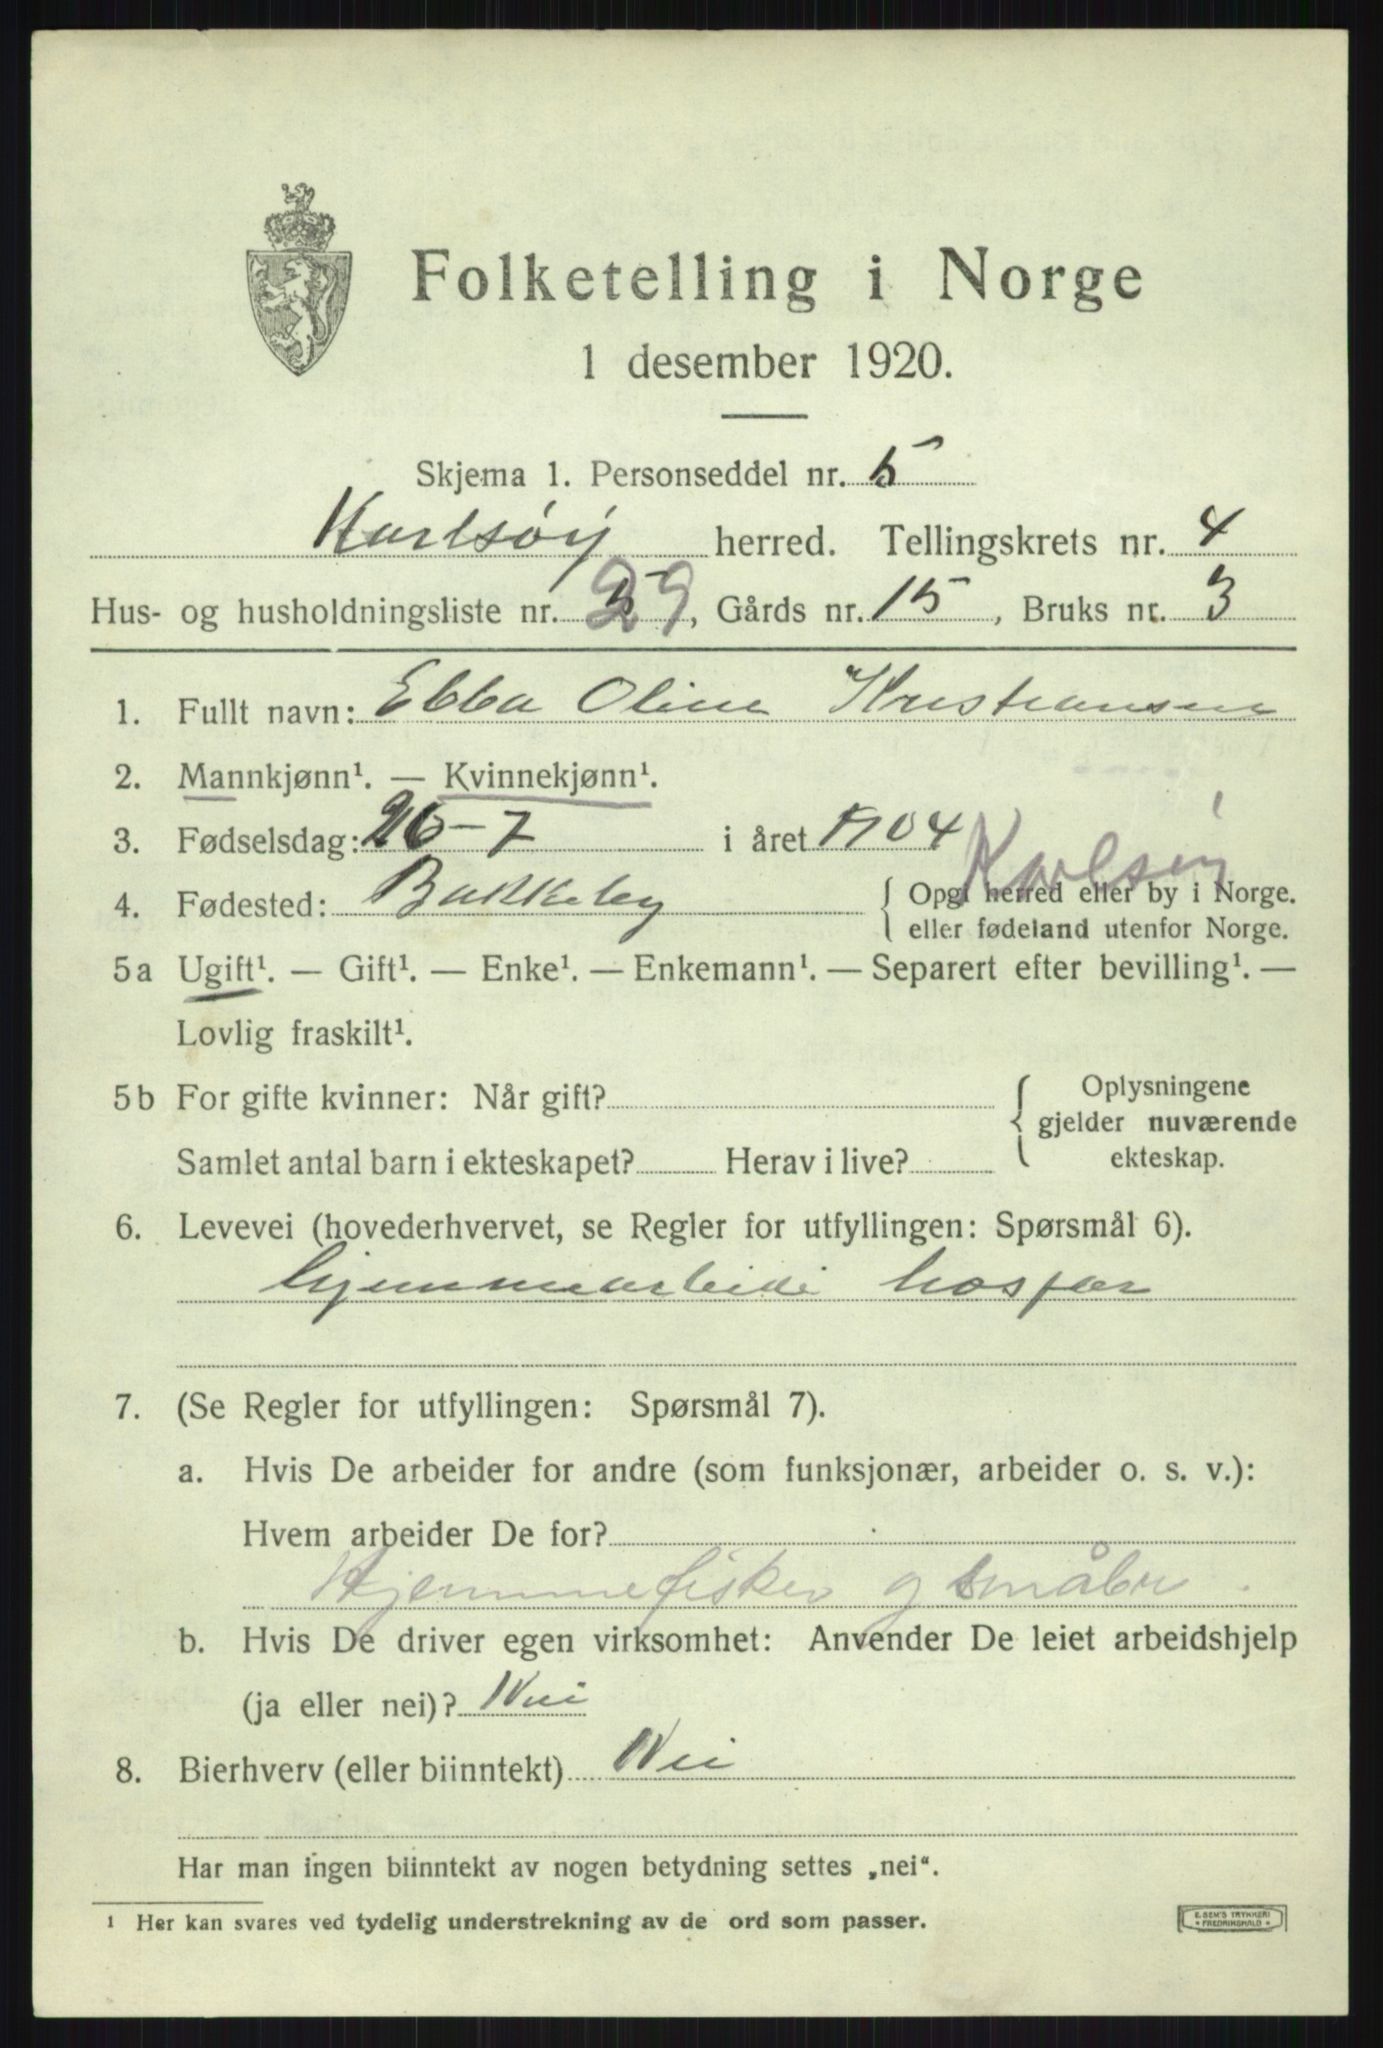 Folketelling i Norge
1 desember 1920.
Skjema 1. Personseddel nr. 5
Karlsøy herred. Tellingskrets nr. 4
Hus- og husholdningsliste nr. 29, Gårds nr. 15, Bruks nr. 3
1. Fullt navn: Ebba Oline Kristiansen
2. Mannkjønn¹. — Kvinnekjønn¹.
3. Fødselsdag: 26-7 i året 1904
Karlsøy
4. Fødested: Bakkeby { Opgi herred eller by i Norge.
eller fødeland utenfor Norge.
5a Ugift¹. — Gift¹. — Enke¹. — Enkemann¹. — Separert efter bevilling¹. —
Lovlig fraskilt¹.
5b For gifte kvinner: Når gift? { Oplysningene
gjelder nuværende
Samlet antal barn i ekteskapet? Herav i live? ekteskap.
6. Levevei (hovederhvervet, se Regler for utfyllingen: Spørsmål 6).
hjemmearbeide hos far
7. (Se Regler for utfyllingen: Spørsmål 7).
a. Hvis De arbeider for andre (som funksjonær, arbeider o. s. v.):
Hvem arbeider De for?
Hjemmefisker og småbr.
b. Hvis De driver egen virksomhet: Anvender De leiet arbeidshjelp
(ja eller nei)? Nei
8. Bierhverv (eller biinntekt) Nei
Har man ingen biinntekt av nogen betydning settes „nei“.
¹ Her kan svares ved tydelig understrekning av de ord som passer.
E. SEM'S TRYKKERI
* FREDRIKSHALD *